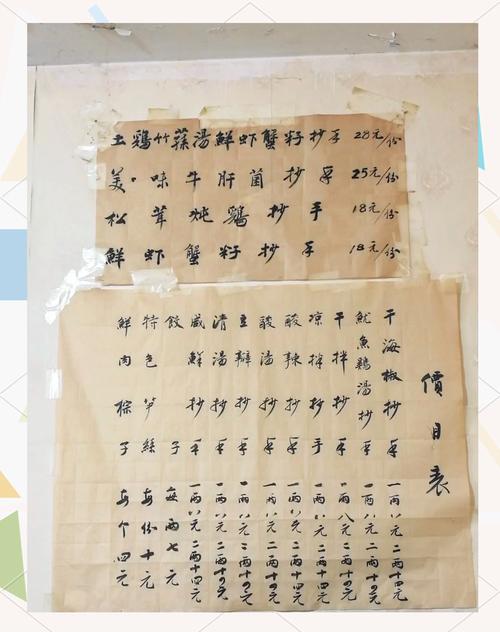 土鷄竹蓀湯鮮虾蟹籽抄手 28元/份
美味牛肝菌抄手 25元/份
松茸炖鷄抄手 18元/份
鮮虾蟹籽抄手 18元/份
價目表
干海椒抄手 一两八元 二两十四元
魷魚鷄湯抄手 一两八元 二两十四元
干拌抄手 一两八元 二两十四元
凉拌抄手 一两八元 二两十四元
酸辣抄手 一两八元 二两十四元
酸湯抄手 一两八元 二两十四元
豆瓣抄手 一两八元 二两十四元
清湯抄手 一两八元 二两十四元
咸鮮抄手 一两八元 二两十四元
餃子 每两七元
特色笋絲 每份十元
鮮肉棕子 每个四元